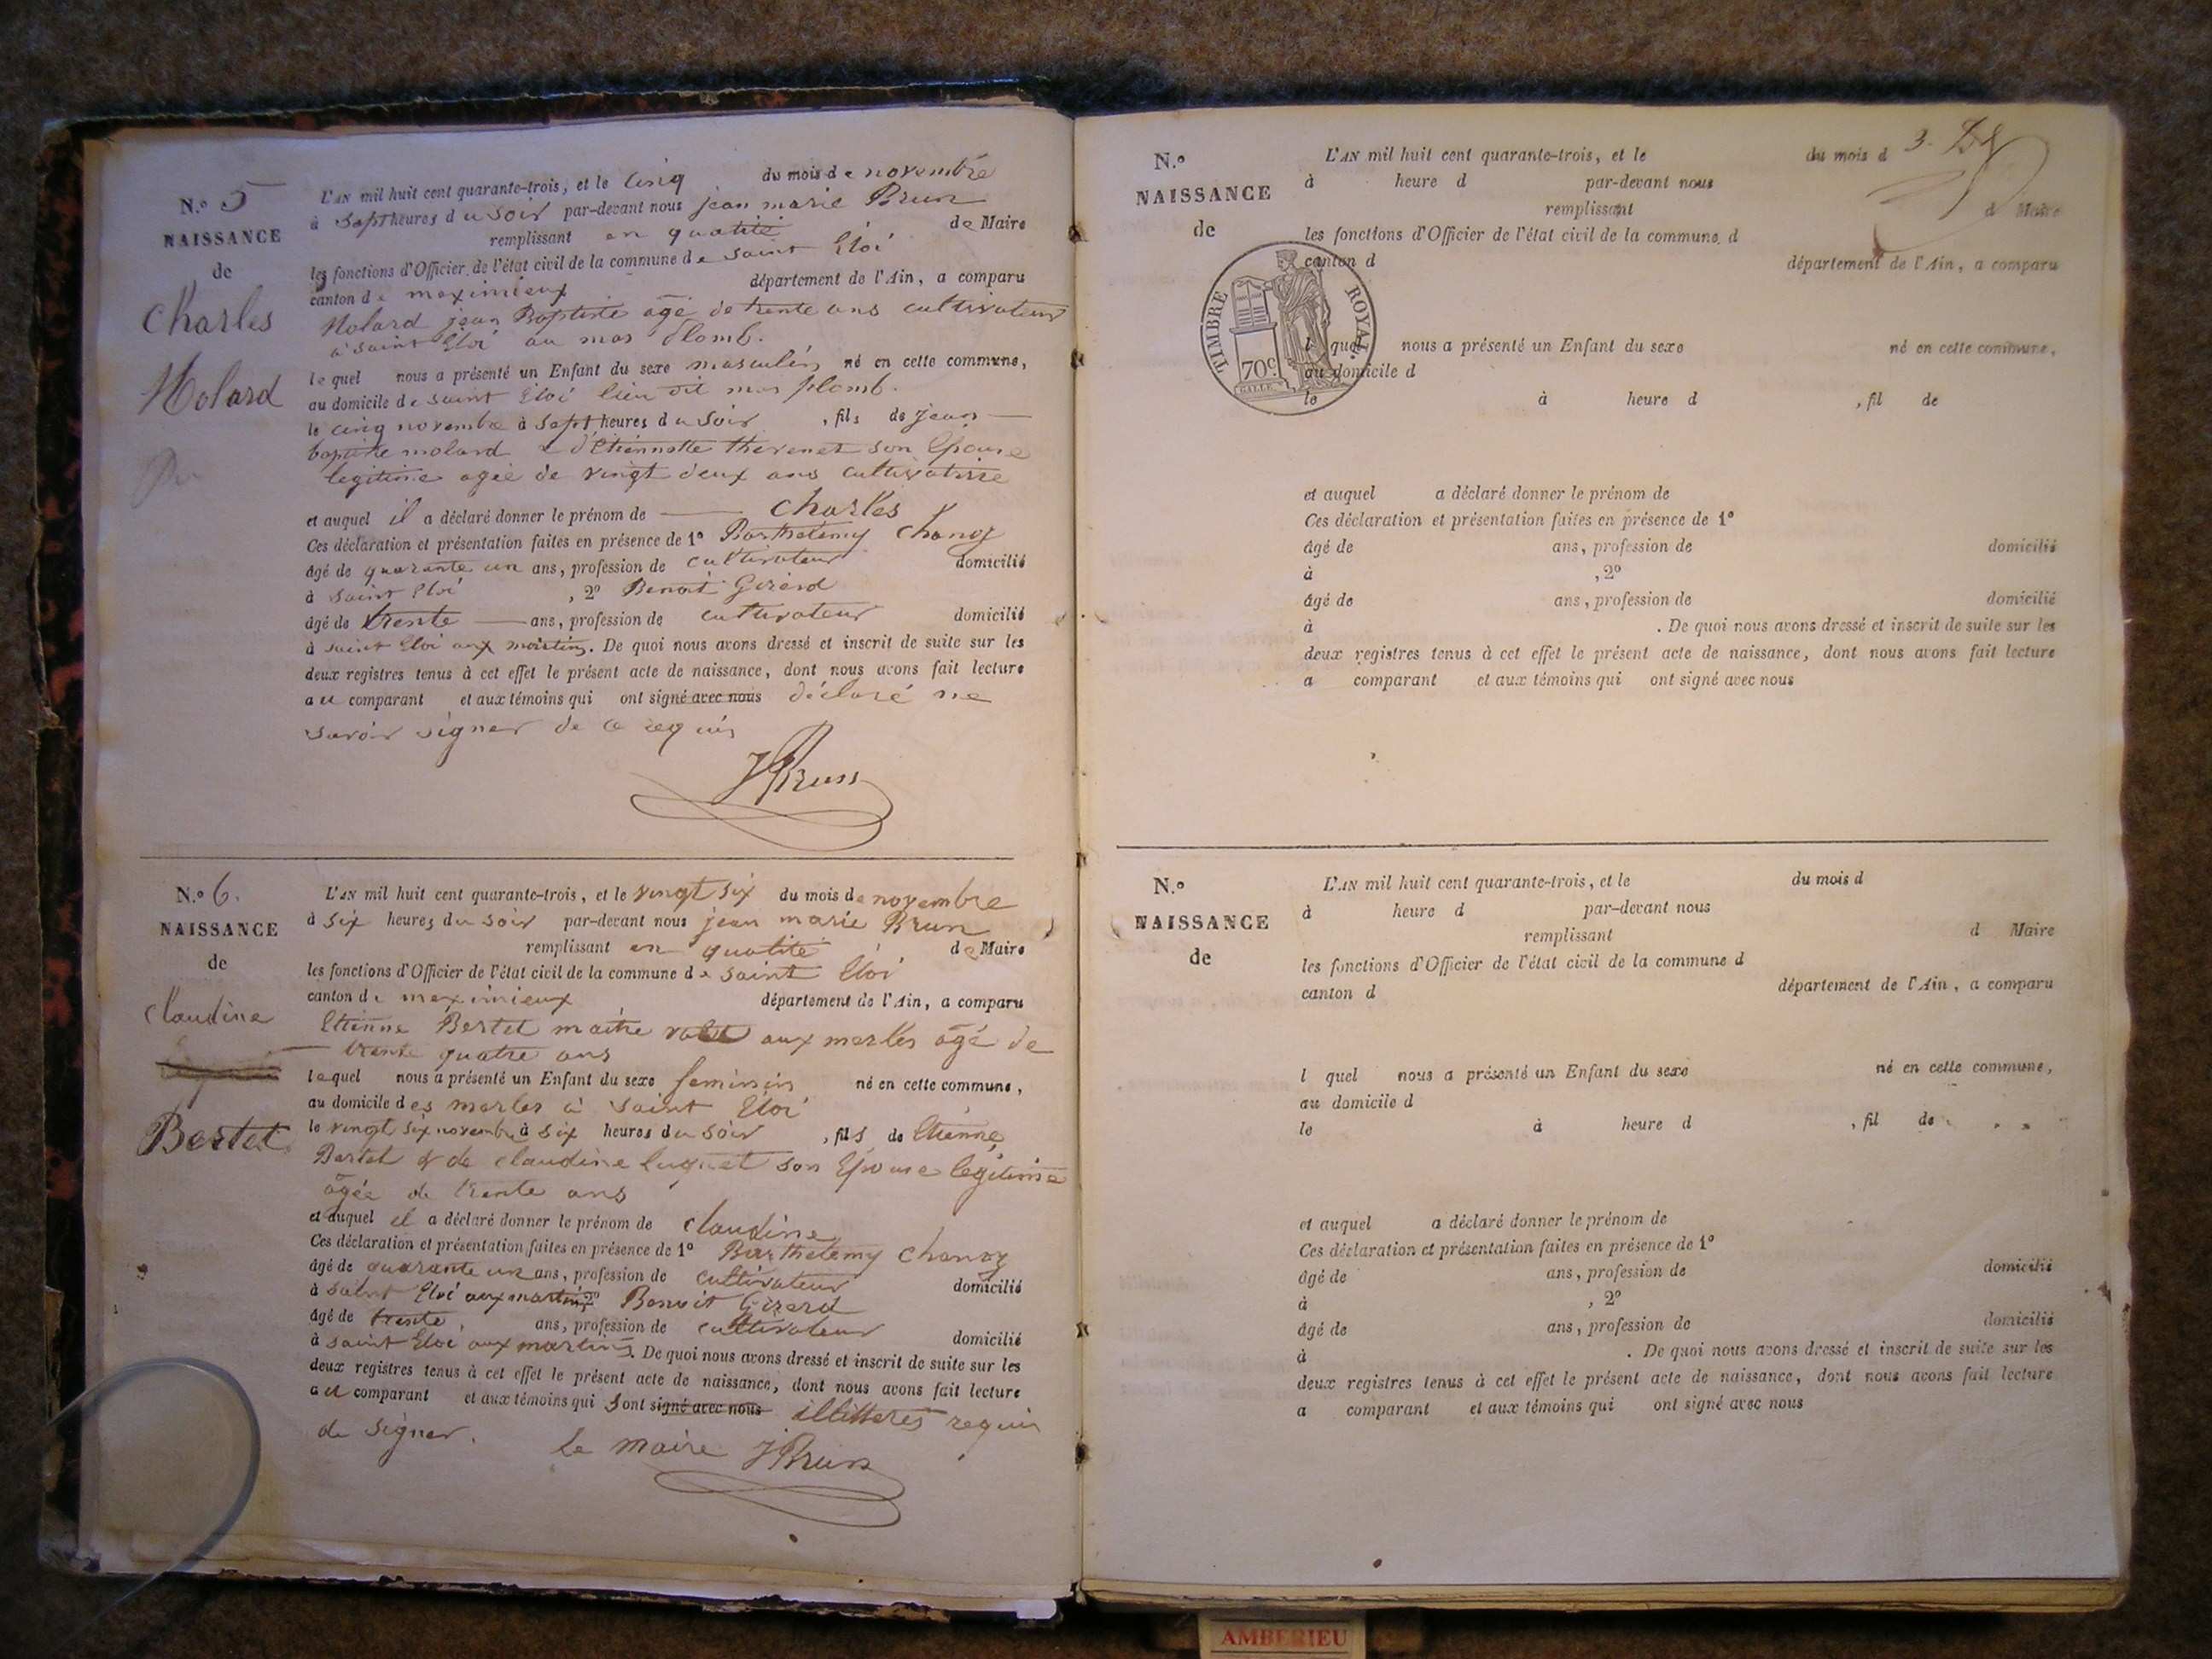 N.º 5
NAISSANCE
de
Charles
Molard
L'AN mil huit cent quarante-trois, et le cinq du mois de novembre
à sept heures du soir par-devant nous jean marie Brun
remplissant en qualité de Maire
les fonctions d'Officier de l'état civil de la commune de saint Eloi
canton de meximieux département de l'Ain, a comparu
Molard jean Baptiste agé de trente ans cultivateur
à saint Eloi au mas plomb.
lequel nous a présenté un Enfant du sexe masculin né en cette commune,
au domicile de saint Eloi lieu dit mas plomb.
le cinq novembre à sept heures du soir, fils de jean
baptiste molard & d'Etiennette thevenet son Epouse
legitime agée de vingt deux ans cultivatrise
et auquel il a déclaré donner le prénom de Charles
Ces déclaration et présentation faites en présence de 1º Barthelemy Chanoz
âgé de quarante un ans, profession de cultivateur domicilié
à saint Eloi, 2º Benoit Girard
âgé de trente ans, profession de cultivateur domicilié
à saint Eloi aux martins. De quoi nous avons dressé et inscrit de suite sur les
deux registres tenus à cet effet le présent acte de naissance, dont nous avons fait lecture
au comparant et aux témoins qui ont signé avec nous déclaré ne
savoir signer de ce requis
JBrun
N.º 6.
NAISSANCE
de
Claudine
Bertet
L'AN mil huit cent quarante-trois, et le vingt six du mois de novembre
à six heures du soir par-devant nous jean marie Brun
remplissant en qualité de Maire
les fonctions d'Officier de l'état civil de la commune de saint Eloi
canton de meximieux département de l'Ain, a comparu
Etienne Bertet maitre valet aux merles agé de
trente quatre ans
lequel nous a présenté un Enfant du sexe feminin né en cette commune,
au domicile des merles à saint Eloi
le vingt six novembre à six heures du soir, fils de Etienne
Bertet & de claudine luquet son Epouse legitime
agée de trente ans
et auquel il a déclaré donner le prénom de claudine
Ces déclaration et présentation faites en présence de 1º Barthelemy Chanoz
âgé de quarante un ans, profession de cultivateur domicilié
à saint Eloi aux martins, 2º Benoit Girard
âgé de trente, ans, profession de cultivateur domicilié
à saint Eloi aux martins. De quoi nous avons dressé et inscrit de suite sur les
deux registres tenus à cet effet le présent acte de naissance, dont nous avons fait lecture
au comparant et aux témoins qui sont signé avec nous illitterés requis
de signer. le maire JBrun
3.
N.º
NAISSANCE
de
TIMBRE ROYAL.
70c
L'AN mil huit cent quarante-trois, et le du mois d
à heure d par-devant nous
remplissant d Maire
les fonctions d'Officier de l'état civil de la commune d
canton d département de l'Ain, a comparu
l quel nous a présenté un Enfant du sexe né en cette commune,
au domicile d
le à heure d , fil de
et auquel a déclaré donner le prénom de
Ces déclaration et présentation faites en présence de 1º
âgé de ans, profession de domicilié
à , 2º
âgé de ans, profession de domicilié
à . De quoi nous avons dressé et inscrit de suite sur les
deux registres tenus à cet effet le présent acte de naissance, dont nous avons fait lecture
a comparant et aux témoins qui ont signé avec nous
N.º
NAISSANCE
de
L'AN mil huit cent quarante-trois, et le du mois d
à heure d par-devant nous
remplissant d Maire
les fonctions d'Officier de l'état civil de la commune d
canton d département de l'Ain, a comparu
l quel nous a présenté un Enfant du sexe né en cette commune,
au domicile d
le à heure d , fil de
et auquel a déclaré donner le prénom de
Ces déclaration et présentation faites en présence de 1º
âgé de ans, profession de domicilié
à , 2º
âgé de ans, profession de domicilié
à . De quoi nous avons dressé et inscrit de suite sur les
deux registres tenus à cet effet le présent acte de naissance, dont nous avons fait lecture
a comparant et aux témoins qui ont signé avec nous
AMBERIEU